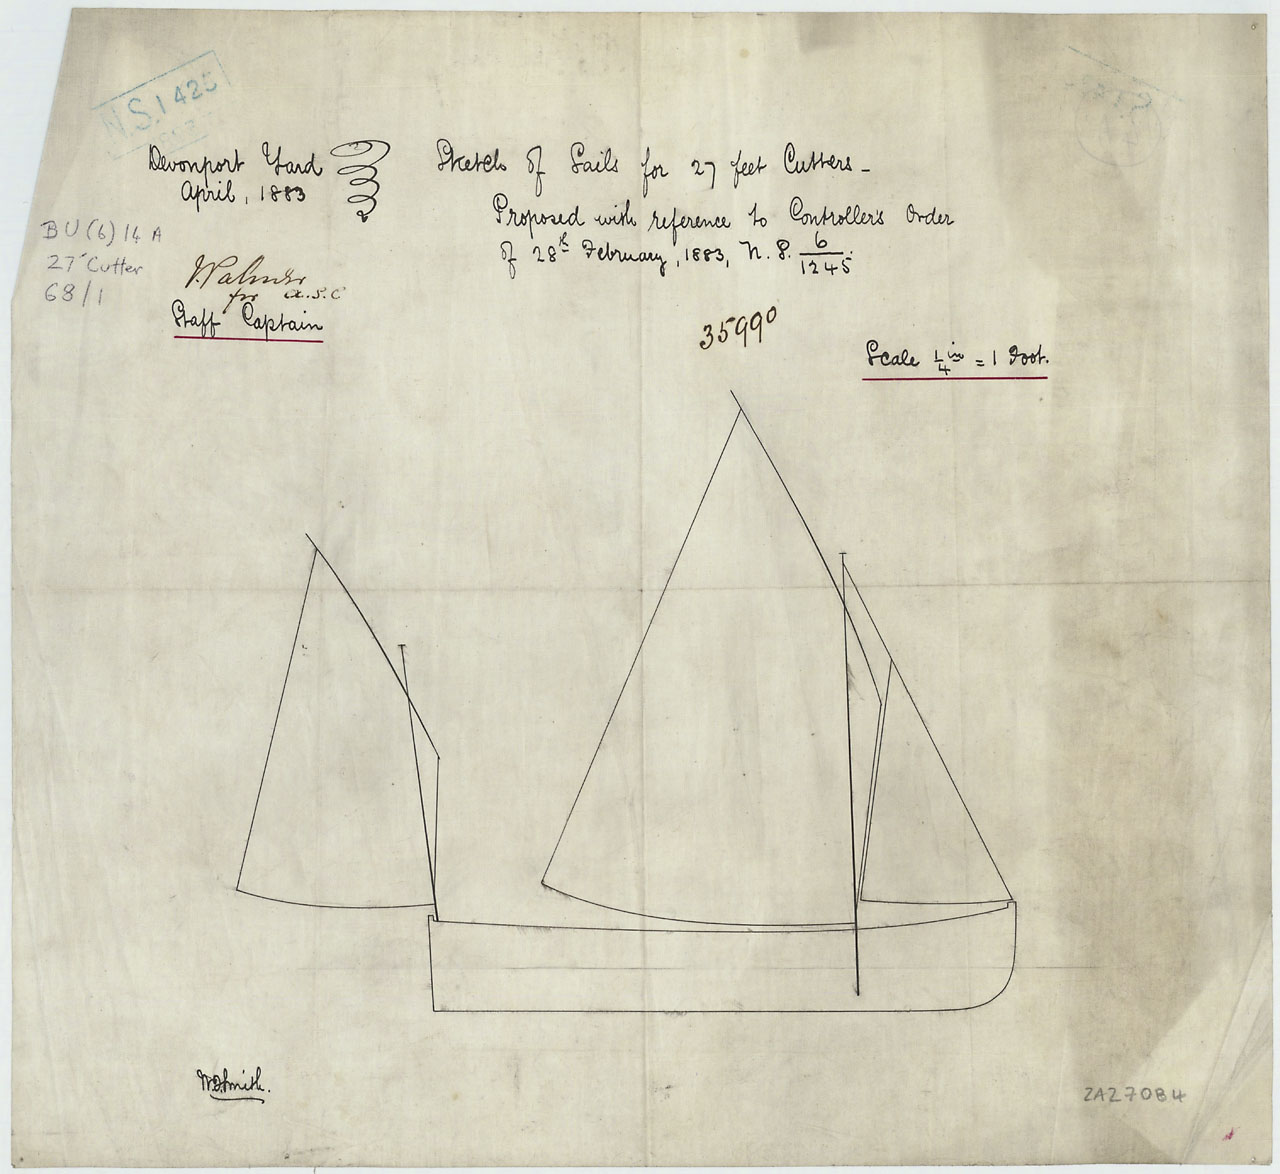 N.S. 1425
Devonport Yard
April, 1883
Sketch of Sails for 27 feet Cutters -
Proposed with reference to Controller's Order
of 28th February, 1883, N.S. 6/1245
BU(6) 14 A
27' Cutter
68/1
for A.S.C
Staff Captain
35990
Scale 1/4 in = 1 Foot.
W.D. Smith.
ZAZ7084